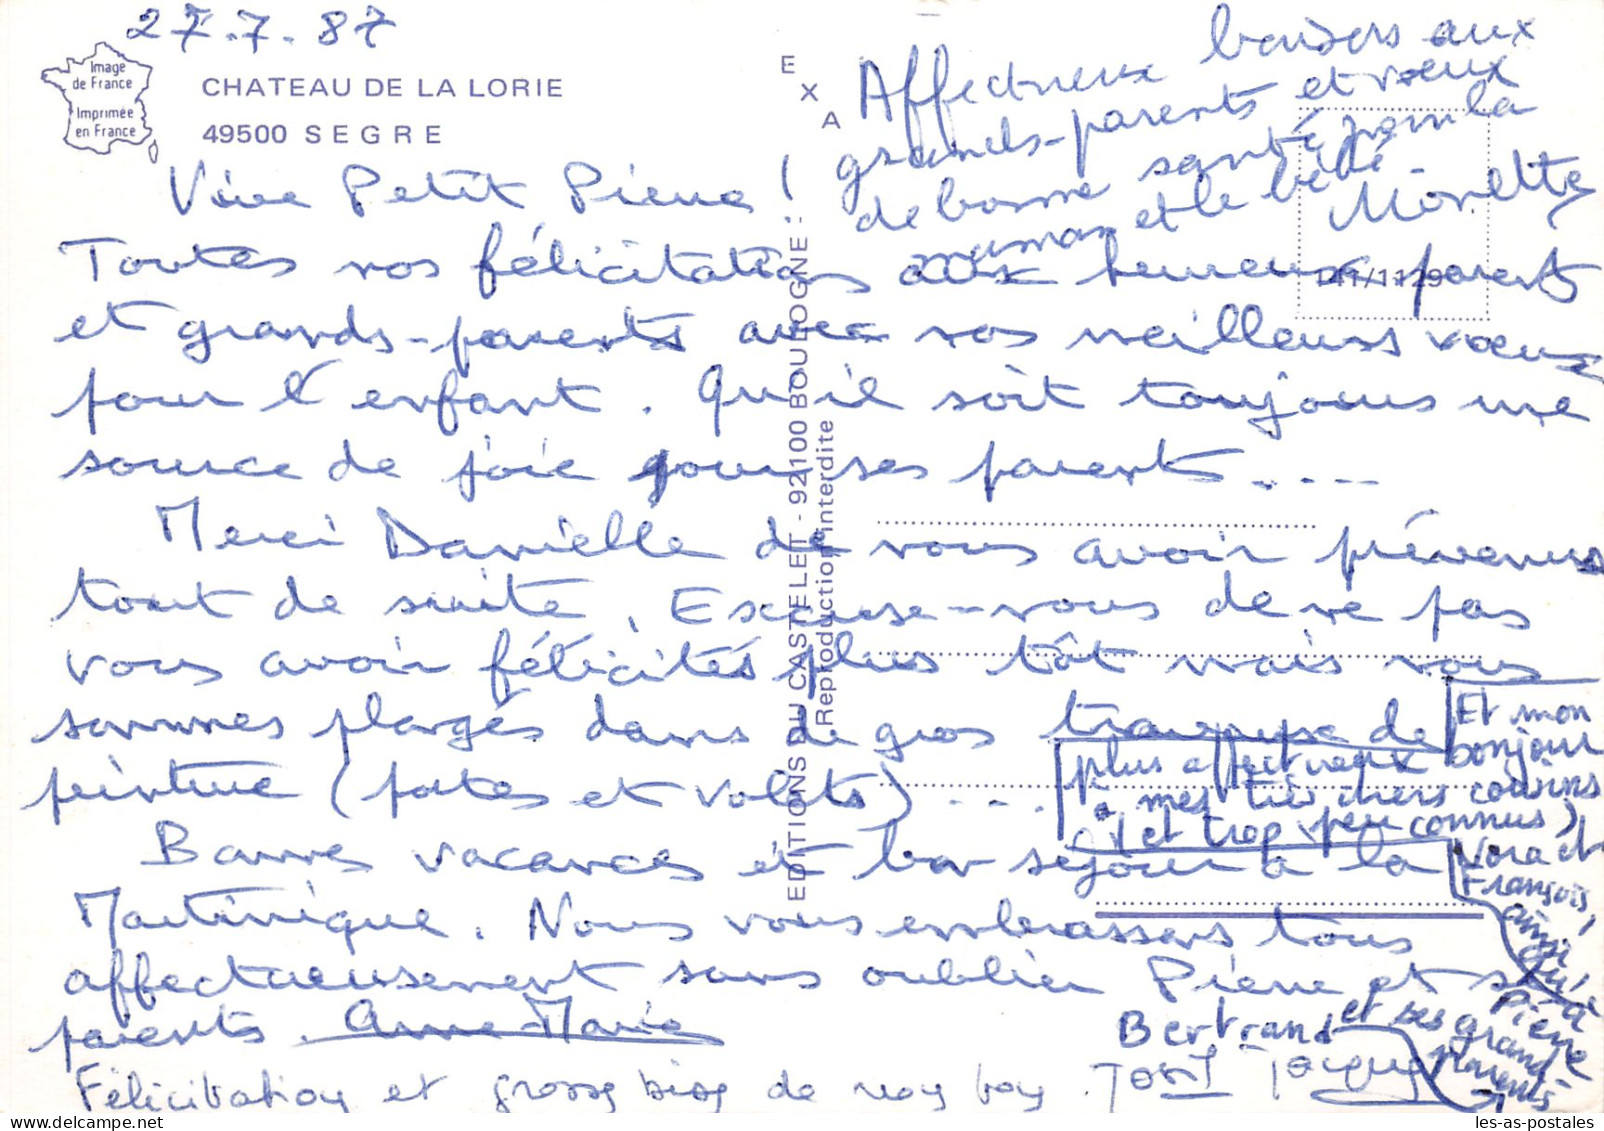 27.7.87
Image
de France
Imprimée
en France
CHATEAU DE LA LORIE
49500 SEGRE
EXA
EDITIONS DU CASTELET - 92100 BOULOGNE
Reproduction interdite
141/1129
Affectueux baisers aux
grands-parents et vœux
de bonne santé pour la
maman et le bébé.
Vive Petit Pierre !
Toutes nos félicitations aux heureux parents
et grands-parents avec nos meilleurs vœux
pour l'enfant. Qu'il soit toujours une
source de joie pour ses parents ....
Merci Danielle de nous avoir prévenus
tout de suite. Excuse-nous de ne pas
vous avoir félicités plus tôt mais nous
sommes plongés dans de gros travaux de
peinture (portes et volets) ....
Bonnes vacances et bon séjour à la
Martinique. Nous vous embrassons tous
affectueusement sans oublier Pierre et ses
parents. Anne-Marie
Félicitations et grosses bises de nous tous.
Et mon
bonjour
plus affectueux
à mes très chers cousins
(et trop peu connus)
Nora et
François,
ainsi
qu'à
Pierre
et ses grands
parents
Bertrand